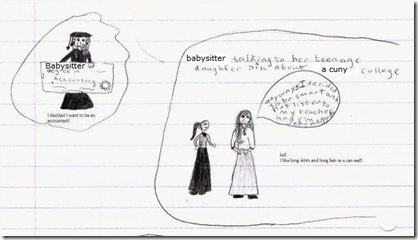 Babysitter
degree in
Accounting
I decided I want to be an
accountant!
babysitter talking to her teenage
daughter about a cuny college
anyways I decided
to be smart and
just listen to
my teacher
and I'm
lol!
I like long skirts and long hair as u can see!!